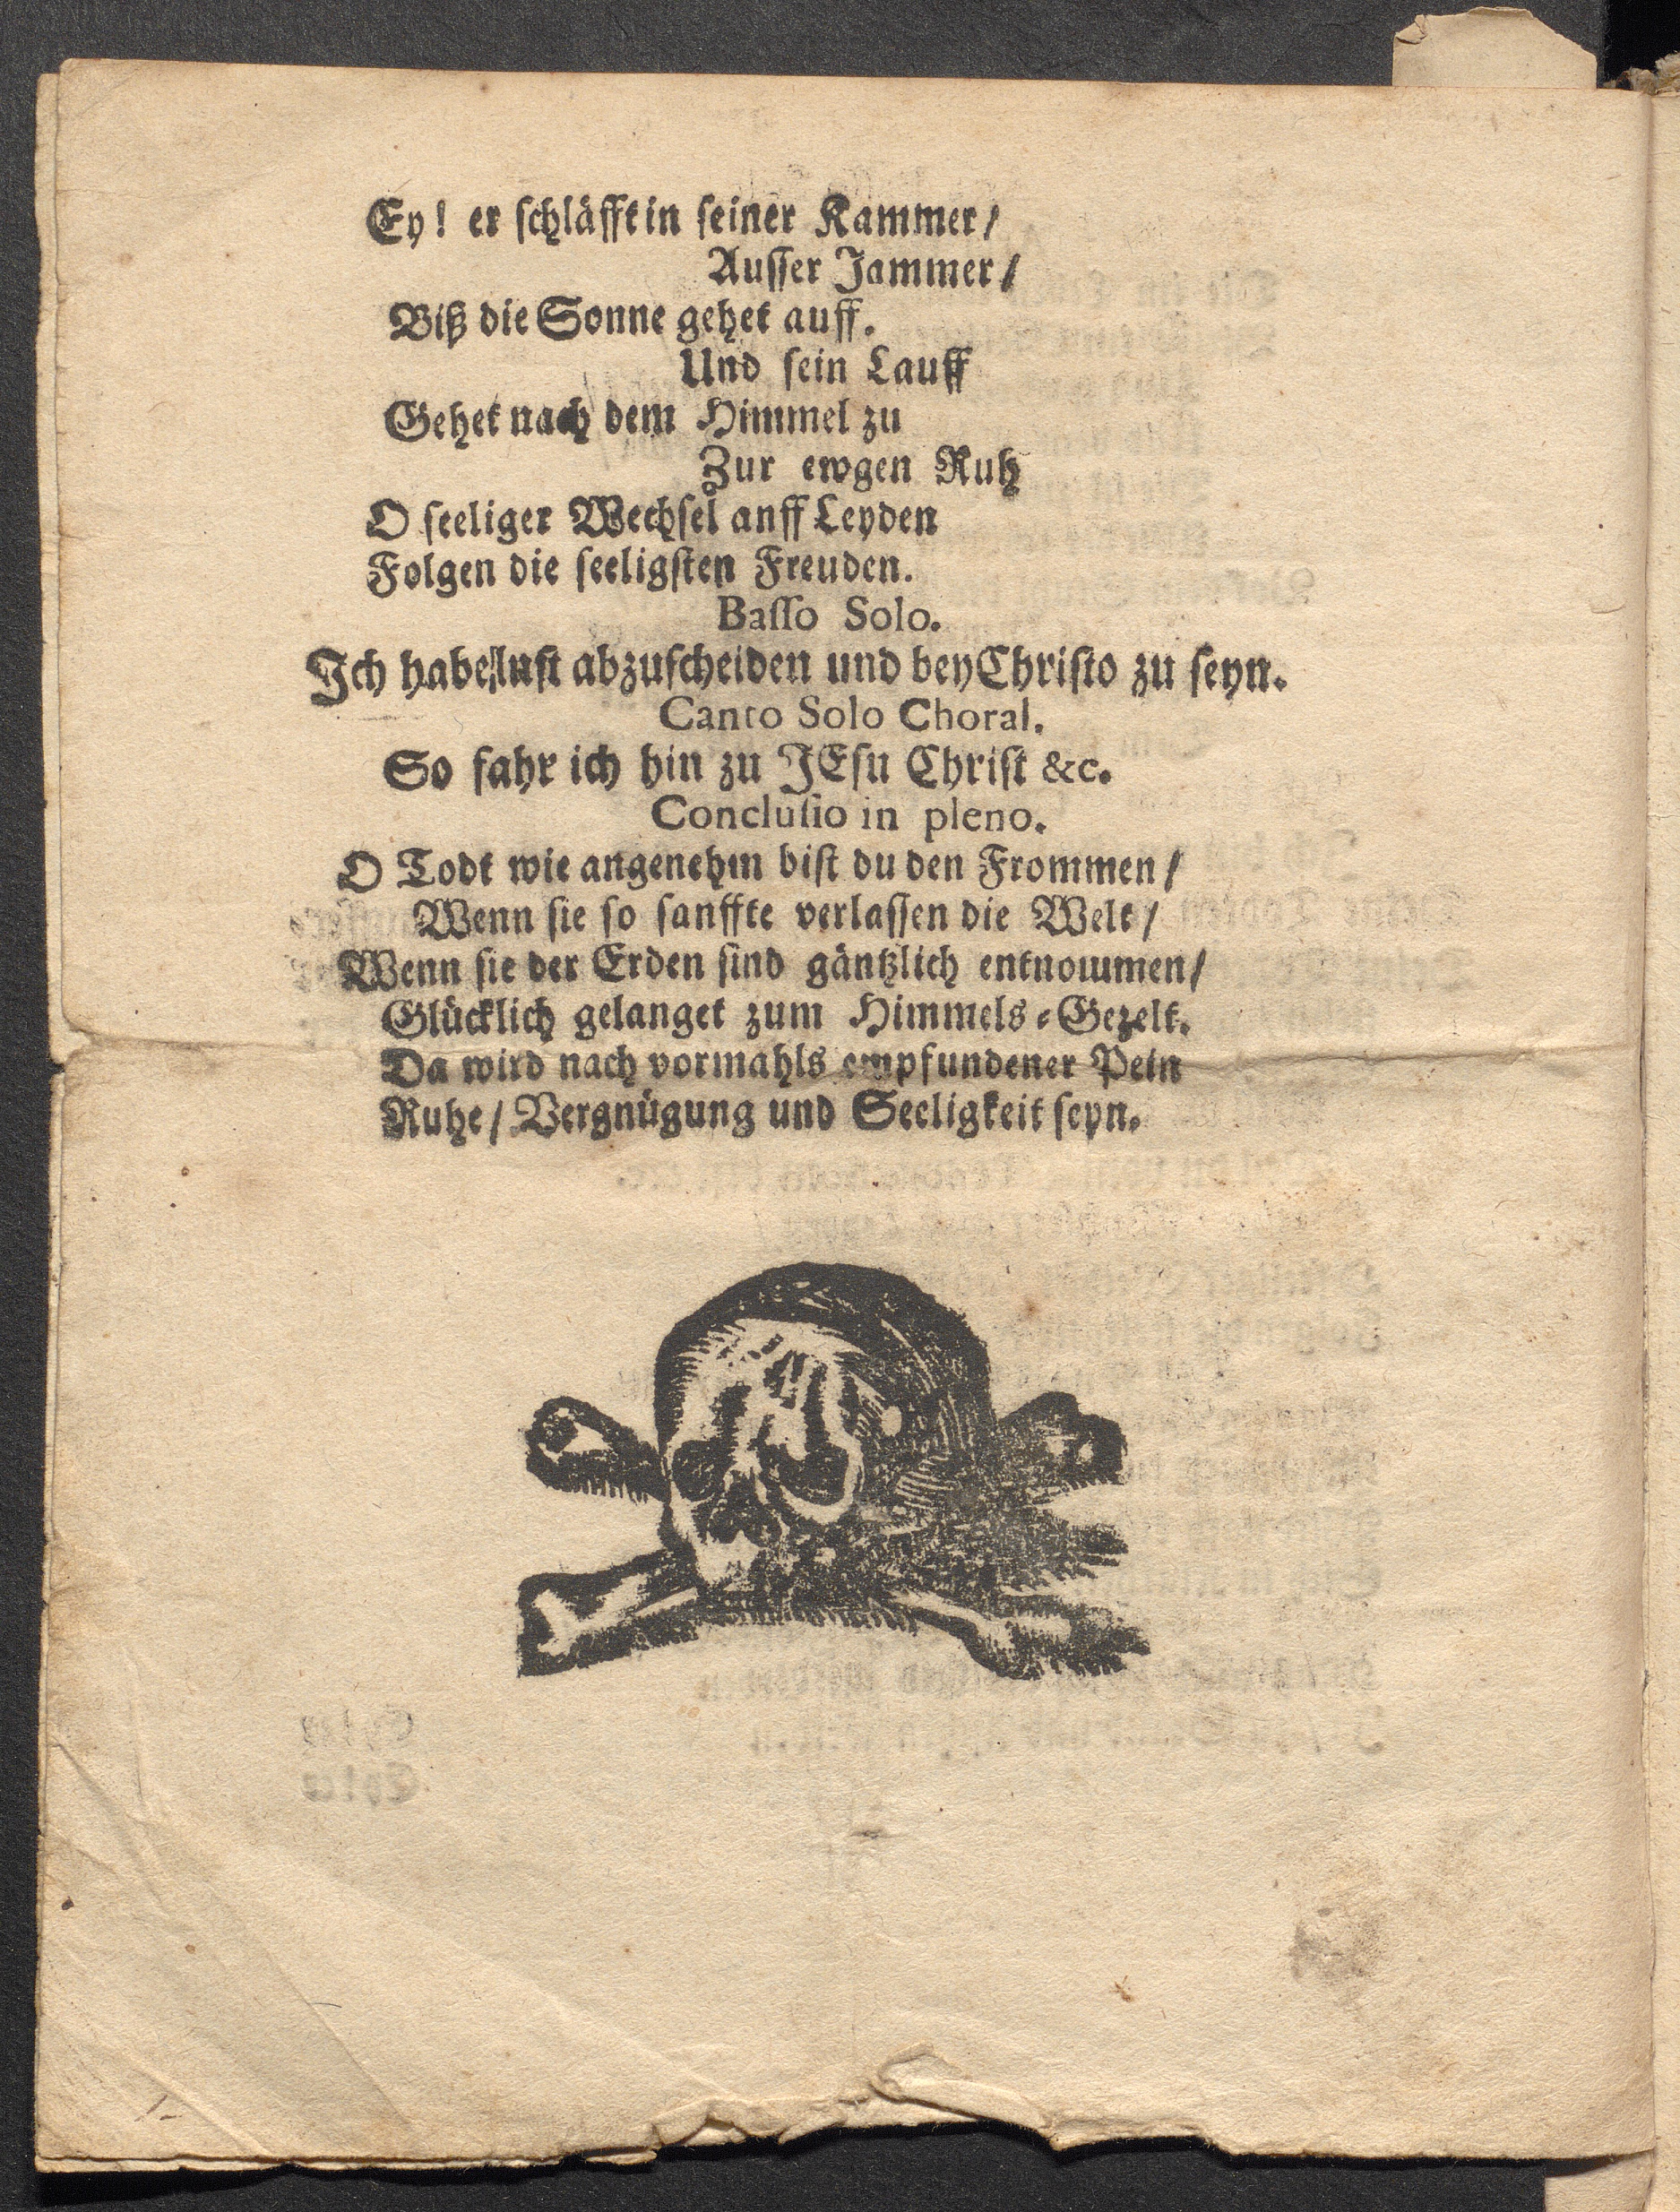 Ey! er schläfft in seiner Kammer/
Ausser Jammer/
Biß die Sonne gehet auff.
Und sein Lauff
Gehet nach dem Himmel zu
Zur ewgen Ruh
O seeliger Wechsel anff Leyden
Folgen die seeligsten Freuden.
Basso Solo.
Ich habe lust abzuscheiden und bey Christo zu seyn.
Canto Solo Choral.
So fahr ich hin zu JEsu Christ &c.
Conclusio in pleno.
O Todt wie angenehm bist du den Frommen/
Wenn sie so sanffte verlassen die Welt/
Wenn sie der Erden sind gäntzlich entnommen/
Glücklich gelanget zum Himmels-Gezelt.
Da wird nach vormahls empfundener Pein
Ruhe/ Vergnügung und Seeligkeit seyn.